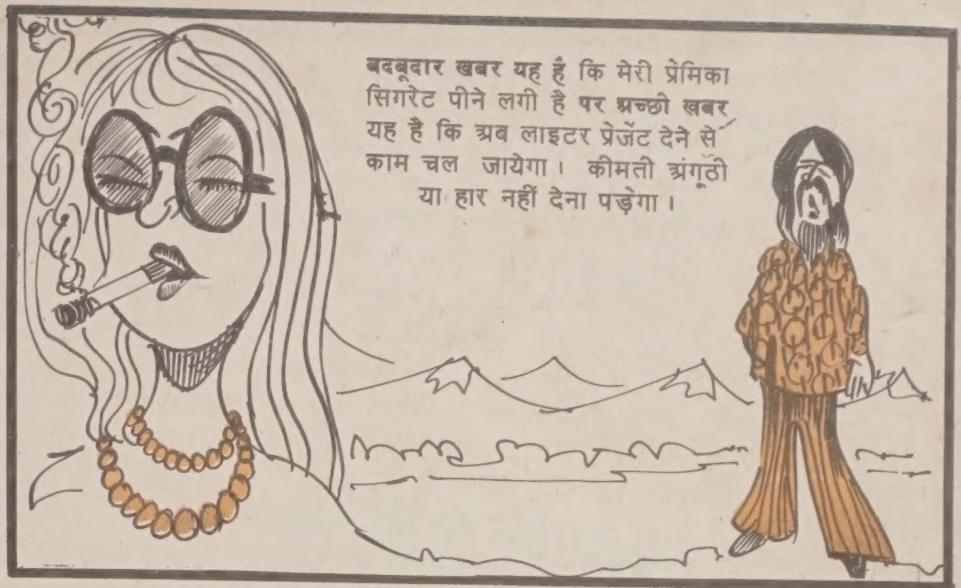 बदबूदार खबर यह है कि मेरी प्रेमिका
सिगरेट पीने लगी है पर अच्छी खबर
यह है कि अब लाइटर प्रेजेंट देने से
काम चल जायेगा। कीमती अंगूठी
या हार नहीं देना पड़ेगा।